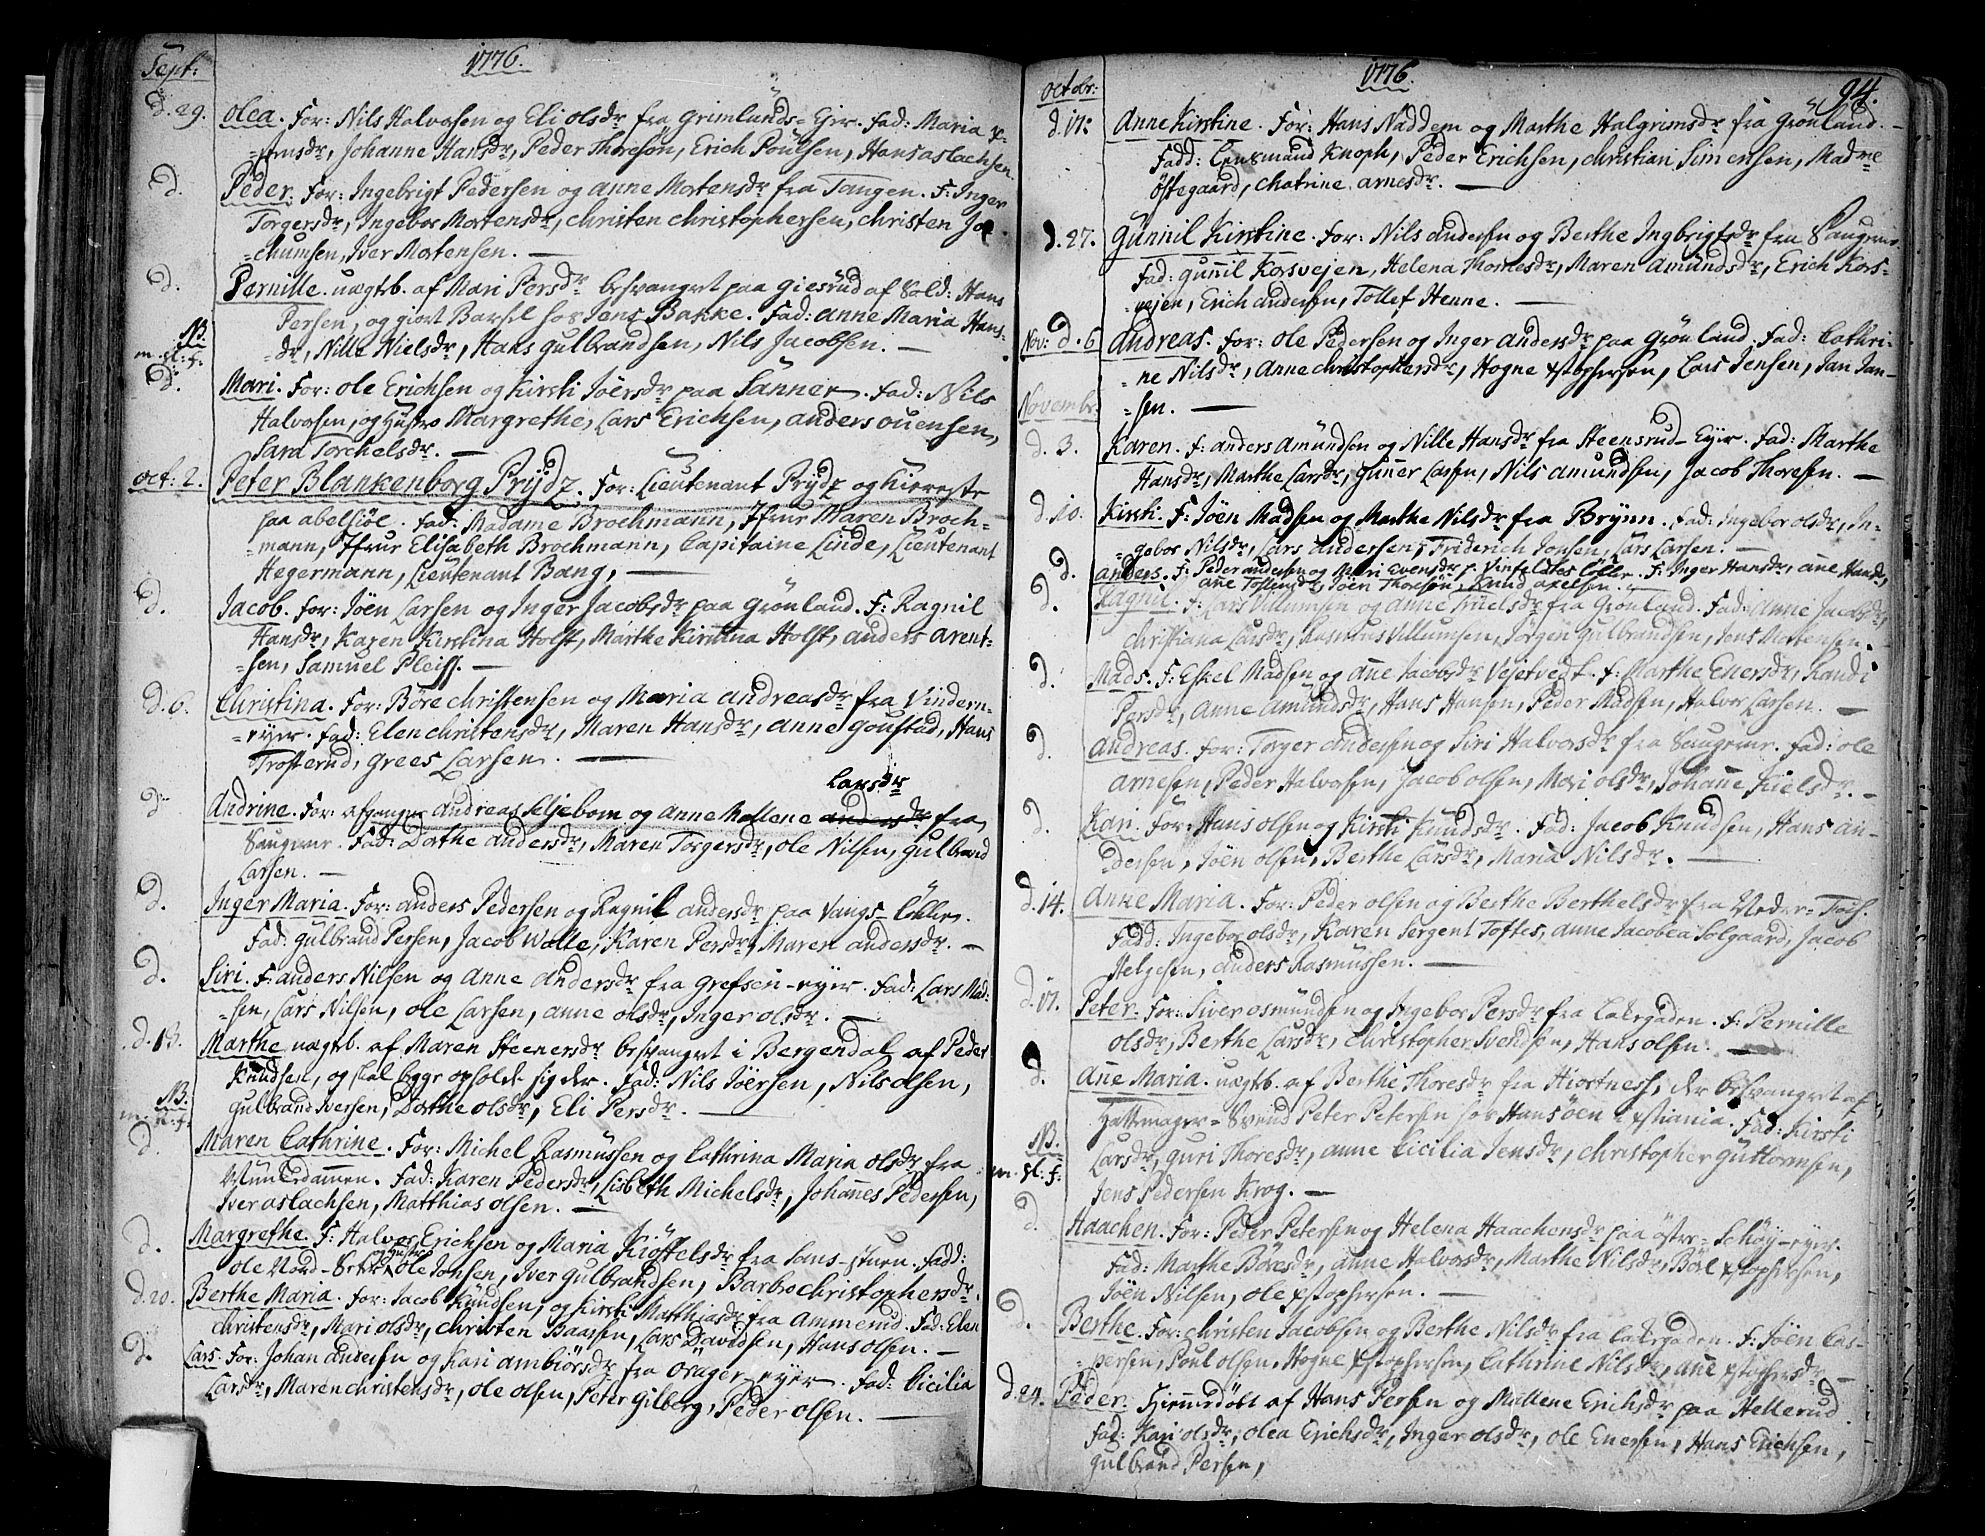 Sept: 1776.
d. 29. Olea. For: Nils Halvorsen og Eli olsdr fra Grimlunds-Ejer. Fad: Maria
Johanne Hansdr, Peder Thoresøn, Erich Poulsen, Hans aslachsen.
d. Peder. For: Ingebrigt Pedersen og Anne Mortensdr fra Tangen. F: Inger
Torgersdr, Ingebor Mortensdr, Christen Christophersen, Christen Jo-
-chumsen, Iver Mortensen. —
d. Pernille. uægtb. af Mari Persdr besvangret paa Giesrud af Sold: Hans
Persen, og giort Barsel hos Jens Bakke. Fad: Anne Maria Hans-
NB. dr, Nille Nielsdr, Hans Gulbrandsen, Nils Jacobsen. —
m. sl: f:
d. Mari. For: Ole Erichsen og Kirsti Joersdr paa Sanner. Fad: Nils
Halvorsen, og Hustro Margrethe, Lars Erichsen, anders ouensen,
Sara Torchelsdr. —
Oct: 2. Peter Blankenborg Prydz. For: Lieutenant Prydz og Kiereste
paa abelsiøe. Fad: Madame Brochmann, Jfrur Maren Broch-
-mann, Jfrur Elisabeth Brochmann, Capitaine Linde, Lieutenant
Hegermann, Lieutenant Bang, —
d. Jacob. For: Joen Larsen og Inger Jacobsdr paa Grønland. F: Ragnil
Hansdr, Karen Kirstina Holst, Marthe Kirstina Holst, anders arent-
-sen, Samuel Pleiss. —
d. 6. Christina. For: Børe Christensen og Maria Andreasdr fra Vindern-
-eyer. Fad: Elen Christensdr, Maren Hansdr, Anne Goustad, Hans
Trosterud, Grees Larsen. —
Larsdr
d Andrine. For: afgangne Andreas Seljebom og Anne Mallene andersdr fra
Saugerne. Fad: Dorthe Andersdr, Maren Torgersdr, Ole Nilsen, Gulbrand
Larsen. —
d. Inger Maria. For: Anders Pedersen og Ragnil Andersdr paa Vangs-Løkken.
Fad: Gulbrand Persen, Jacob Walle, Karen Persdr, Maren Andersdr. —
d. Siri. F: Anders Nilsen og Anne Andersdr fra Grefsen-eyer. Fad: Lars Mad-
-sen, Lars Nilsen, Ole Larsen, Anne olsdr, Inger olsdr. —
d. 13. Marthe uægtb. af Maren Steenersdr besvangret i Bergendal af Peder
Knudsen, og skal begge opholde sig der. Fad: Nils Joersen, Nils olsen,
NB. Gulbrand Iversen, Dorthe olsdr, Eli Persdr. —
m. sl: f:
d. Maren Cathrine. For: Michel Rasmussen og Cathrina Maria olsdr fra
Munkedammen. Fad: Karen Pedersdr, Lisbeth Michelsdr, Johannes Pedersen,
Iver aslachsen, Matthias olsen. —
d. Margrethe. F: Halvor Erichsen og Maria Kristoffelsdr fra Sans-stuen. Fadd:
Ole Nord- Ole Jonsen, Iver Gulbrandsen, Barbro Christophersdr.
d. 20. Berthe Maria. For: Jacob Knudsen, og Kirsti Matthiasdr fra Ammerud. Fad: Elen
Christensdr, Mari olsdr, Christen Baarsen, Lars Davidsen, Hans olsen. —
d. Lars. For: Johan Andersen og Kari Ambiørsdr fra Oväger-eyer. Fad: Cicilia
Larsdr, Maren Christensdr, Ole olsen, Peter Gilberg, Peder olsen. —
Octobr: 1776. 94.
d. 17: Anne Kirstine. For: Hans Naddem og Marthe Halgrimsdr fra Grønland. —
Fadd: Lensmand Knoph, Peder Erichsen, Christian Simensen, Madme
Østegaard, Chatrine Arnesdr. —
d. 27. Gunnil Kirstine. For: Nils Andersen og Berthe Ingbrigtsdr fra Saugerne.
Fad: Gunnil Korsvejen, Helena Thoresdr, Maren Amundsdr, Erich Kors-
vejen, Erich Andersen, Tollef Henne. —
Nov: d. 6 Andreas. For: Ole Pedersen og Inger Andersdr paa Grønland. Fad: Cathri-
-ne Nilsdr, Anne Christophersdr, Hogne Xstophersen, Lars Jensen, Jan Jan-
-sen. —
Novembr:
d. 3. Karen. F: Anders Amundsen og Nille Hansdr fra Steensrud-Eyer. Fad: Marthe
Hansdr, Marthe Larsdr, Gunner Larsen, Nils Amundsen, Jacob Thoresen. —
d. 10. Kirsti. F: Joen Madsen og Marthe Nilsdr fra Brynn. Fad: Ingebor olsdr, In-
-gebor Nilsdr, Lars Andersen, Friderich Jonsen, Lars Larsen. —
d. Anders. F: Peder Andersen og Mari Evensdr p. Løkke. F: Inger Hansdr, Anne Hansdr,
Anne Joen Thoresøn, Knud axelsen. —
d. Ragnil. F: Lars Villumsen og Anne fra Grønland. Fad: Anne Jacobsdr,
Christiana Larsdr, Rasmus Villumsen, Jørgen Gulbrandsen, Jens Mortensen.
d. Mads. F: Eskel Madsen og Anne Jacobsdr Vejetvedt. F: Marthe Enersdr, Randi
Persdr, Anne Amundsdr, Hans Hansen, Peder Madsen, Halvor Larsen. —
d. Andreas. For: Torger Andersen og Siri Halvorsdr fra Saugerne. Fad: Ole
Arnesen, Peder Halvorsen, Jacob olsen, Mari olsdr, Johanne Kielsdr. —
d. Kari. For: Hans olsen og Kirsti Knudsdr. Fad: Jacob Knudsen, Hans An-
-dersen, Joen olsen, Berthe Larsdr, Maria Nilsdr. —
d. 14. Anne Maria. For: Peder olsen og Berthe Berthelsdr fra Neder-Foss.
Fadd: Ingebor olsdr, Karen Sergent Toftes, Anne Jacobea Solgaard, Jacob
Helgesen, Anders Rasmussen. —
d. 17. Peter. For: Siver Osmundsen og Ingebor Persdr fra Lakegaden. F: Pernille
olsdr, Berthe Larsdr, Christopher Svendsen, Hans olsen. —
d. Anne Maria. uægtb. af Berthe Thoresdr fra Hiortness, der besvangret af
Hattemager-Svend Peter Petersen hos Hans Joen i Xstiania. Fad: Kirsti
NB. Larsdr, Guri Thoresdr, Anne Cicilia Jensdr, Christopher Guttormsen,
m. sl: f: Jens Pedersen Krog. —
d. Haachen. For: Peder Petersen og Helena Haachensdr paa Østre-Schøy-eyer.
Fad: Marthe Børesdr, Anne Halvorsdr, Marthe Nilsdr, Børe Xstophersen,
Joen Nilsen, Ole Xstophersen. —
d. Berthe. For: Christen Jacobsen og Berthe Nilsdr fra Lakegaden. F: Joen Cas-
-persen, Poul olsen, Hogne Xstophersen, Cathrine Nilsdr, Anne Xstophersdr —
d. 24. Peder. Hjemmedøbt af Hans Persen og Mallene Erichsdr paa Hellerud.
Fad: Kari olsdr, Olea Erichsdr, Inger olsdr, Ole Enersen, Hans Erichsen,
Gulbrand Persen,